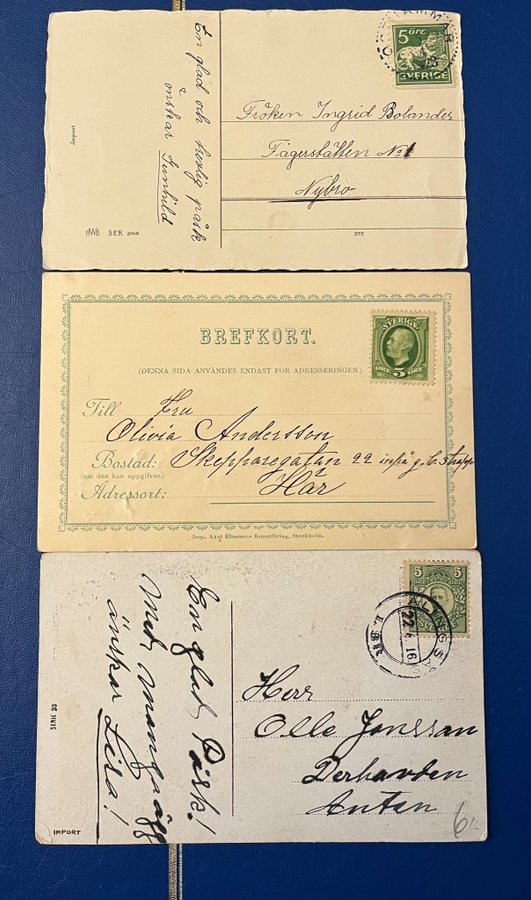 5 ÖRE
SVERIGE
En glad och
trevlig påsk
önskar Gunhild
Fröken Ingrid Bolander
Fägerstätten No 1
Nybro
Import
HWB SER 2068
575
SVERIGE
5
ÖRE ÖRE
BREFKORT.
(DENNA SIDA ANVÄNDES ENDAST FÖR ADRESSERINGEN)
Till Fru
Olivia Andersson
Bostad: Skepparegatan 22
(om den kan uppgifvas)
Här
Adressort:
Imp. Axel Eliassons Konstförlag, Stockholm.
5 5
ALINGSÅS
22.4.16
En glad Påsk!
Med många ägg
önskar Lisa!
Herr
Olle Jonssan
Anten
6:-
SERIE 33
IMPORT